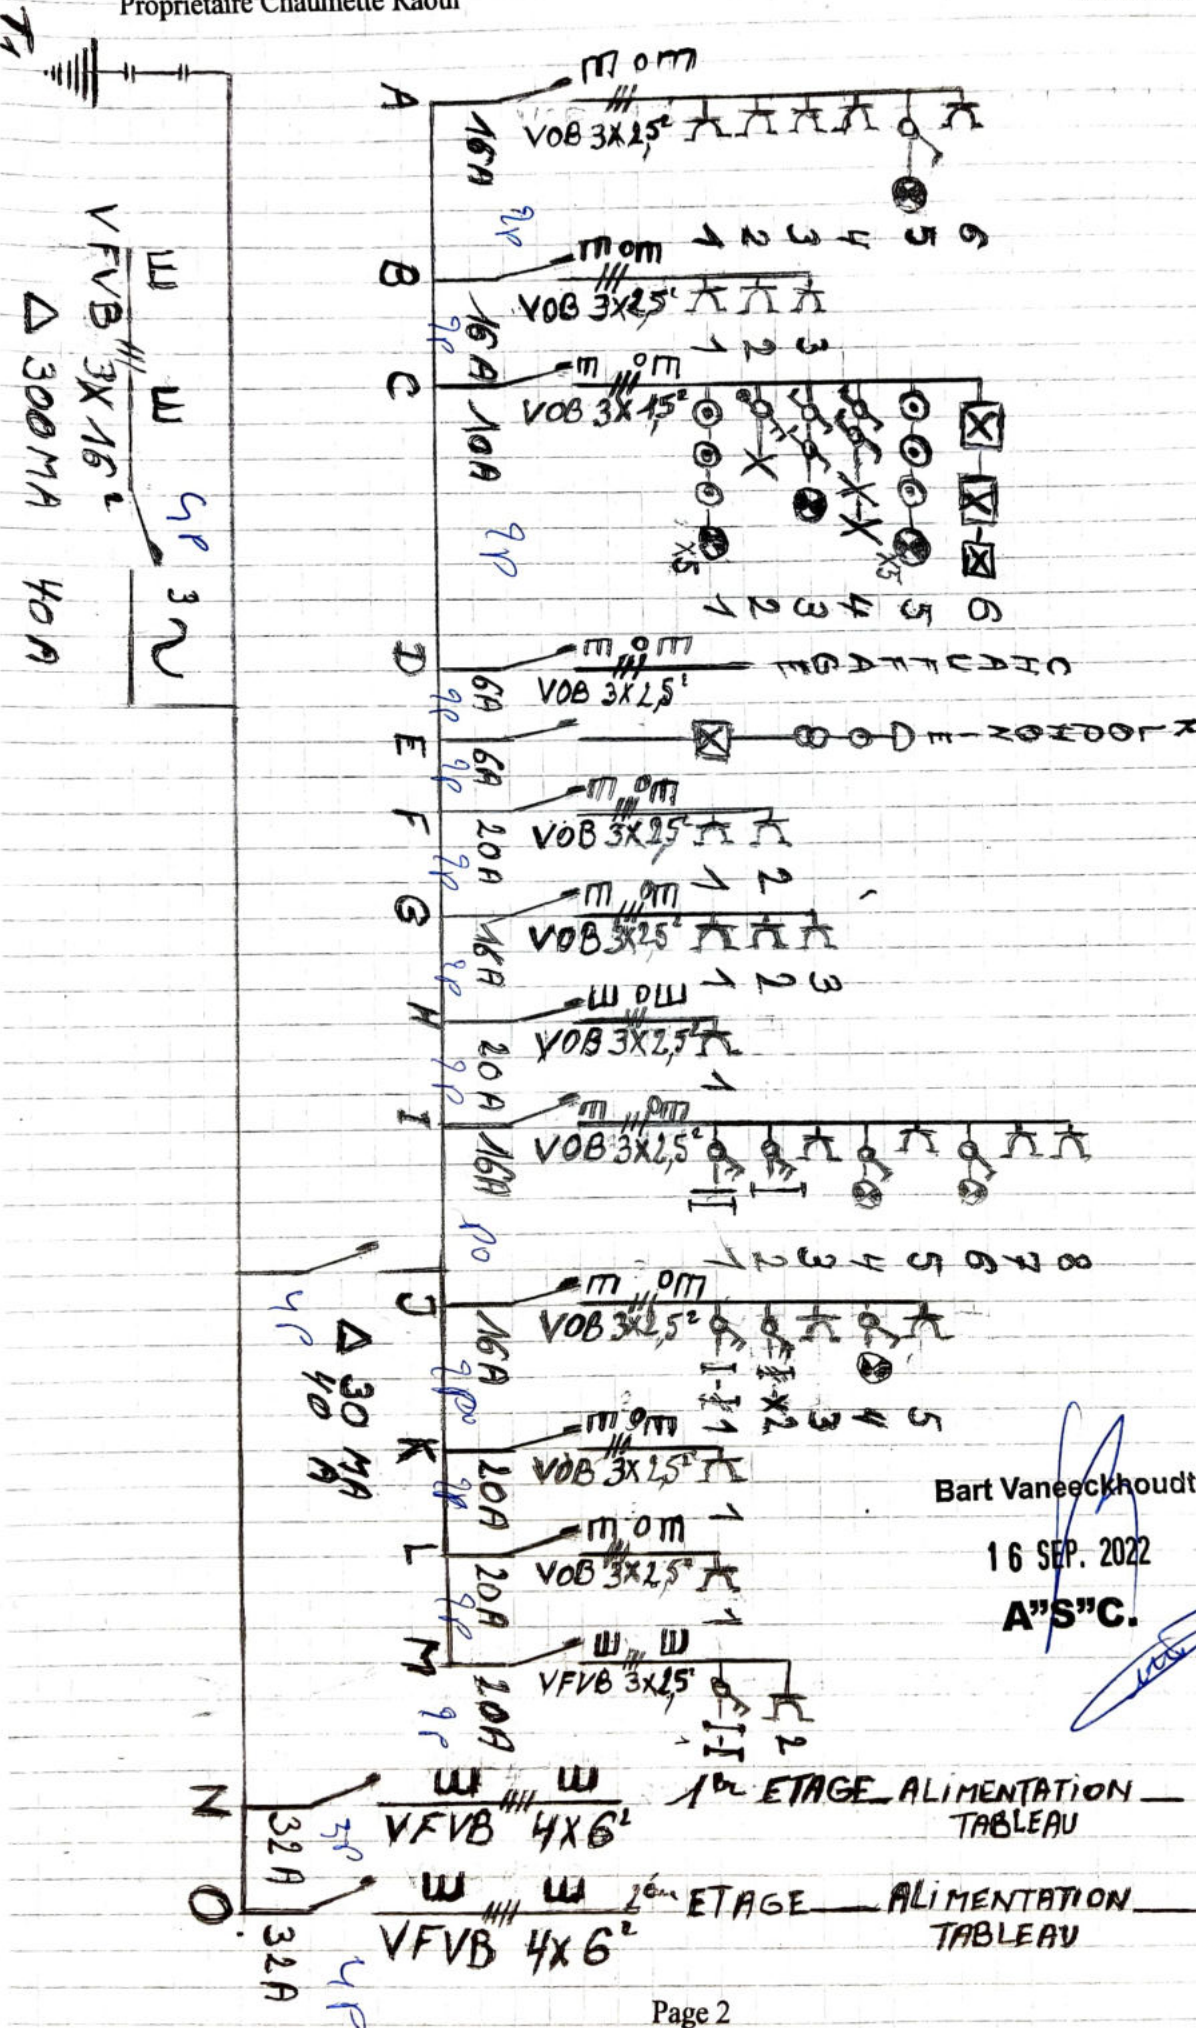 Propriétaire Chaumette Raoul
T1
VFVB 3X16²
△ 300MA 40A
4P
3~
A
16A
2P
VOB 3X2,5²
1 2 3 4 5 6
B
16A
2P
VOB 3X2,5²
1 2 3
C
10A
2P
VOB 3X1,5²
X5
X5
1 2 3 4 5 6
D
6A
2P
VOB 3X2,5²
CHAUFFAGE
E
6A
2P
F
20A
2P
VOB 3X2,5²
1 2
G
16A
2P
VOB 3X2,5²
1 2 3
H
20A
2P
VOB 3X2,5²
1
I
16A
VOB 3X2,5²
1 2 3 4 5 6 7 8
4P
△ 30 MA
40 A
J
16A
VOB 3X2,5²
1 2 3 4 5
K
20A
2P
VOB 3X2,5²
1
L
20A
2P
VOB 3X2,5²
1
M
20A
2P
VFVB 3X2,5²
1 2
Bart Vaneeckhoudt
16 SEP. 2022
A"S"C.
N
32A
VFVB 4X6²
1er ETAGE ALIMENTATION
TABLEAU
O
32A
4P
VFVB 4X6²
ETAGE ALIMENTATION
TABLEAU
Page 2